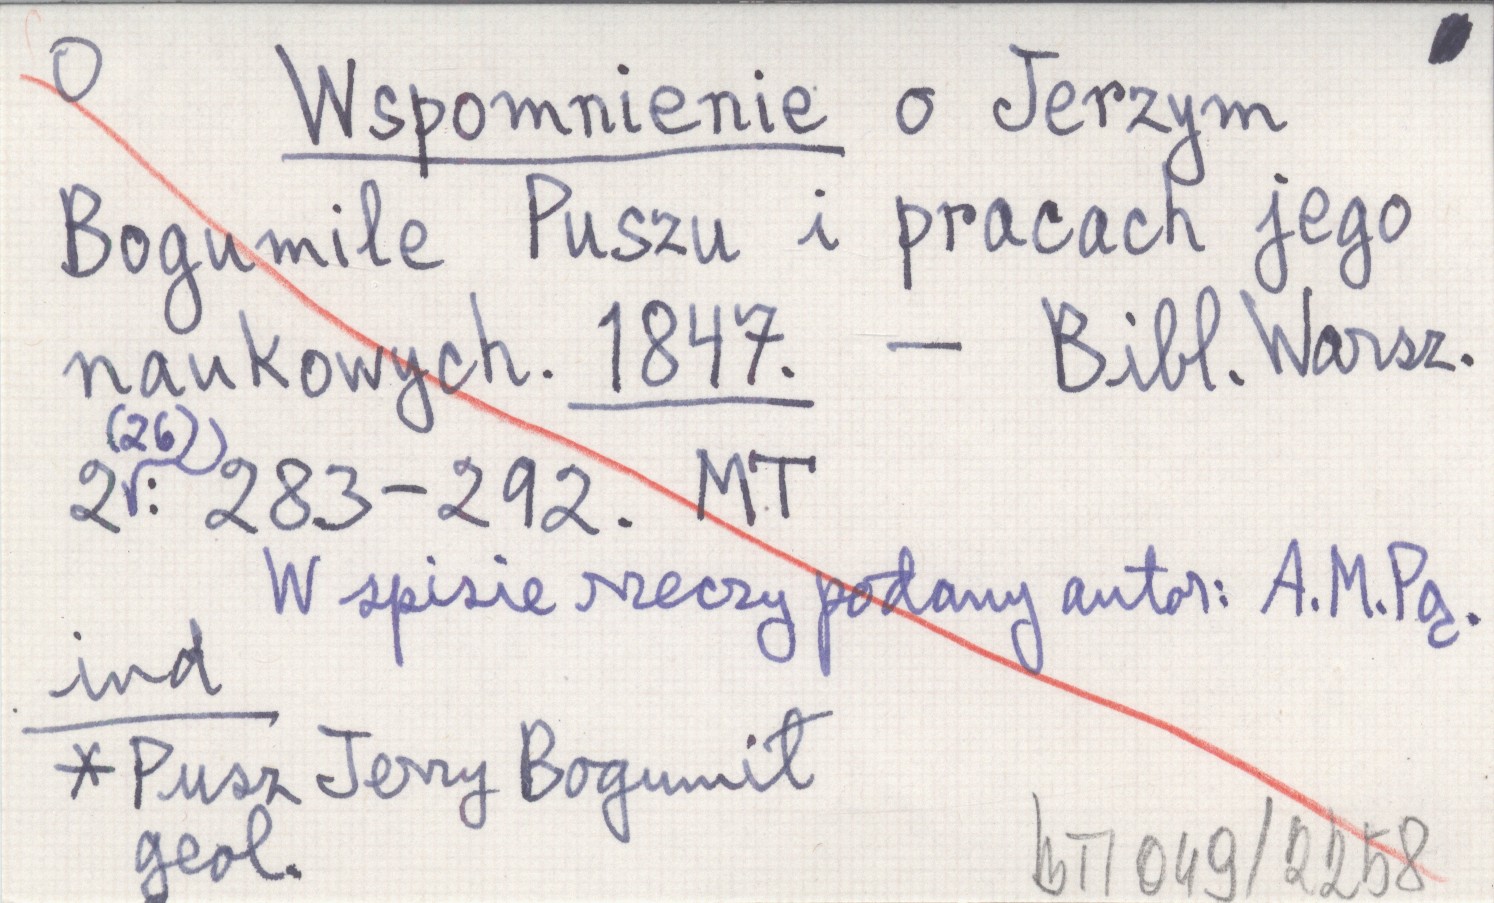 O Wspomnienie o Jerzym
Bogumile Puszu i pracach jego
naukowych. 1847. — Bibl. Warsz.
(26)
2: 283-292. MT
W spisie rzeczy podany autor: A.M.Pą.
ind
* Pusz Jerzy Bogumił
geol.
049/2258